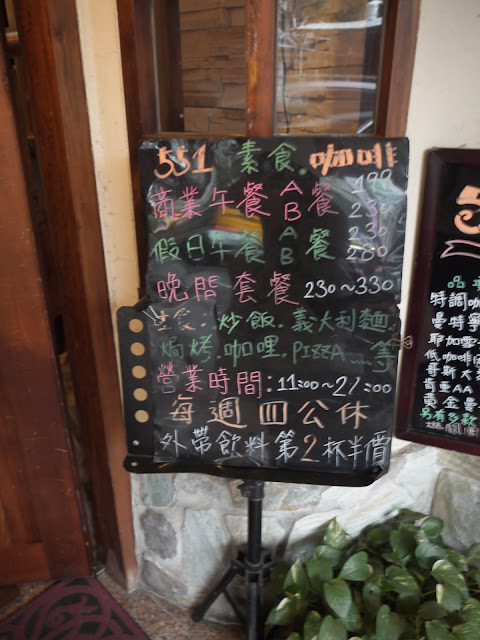 551 素食.咖啡
商業午餐 A 餐 199
B 230
假日午餐 A 餐 230
B 280
晚間套餐 230~330
主食.炒飯.義大利麵.
焗烤.咖哩.PIZZA……等
營業時間:11:00~21:00
每週四公休
外帶飲料第2杯半價
5
特調咖
曼特寧
耶加雪
低咖啡因
哥斯大
肯亞AA
黃金曼
另有多款